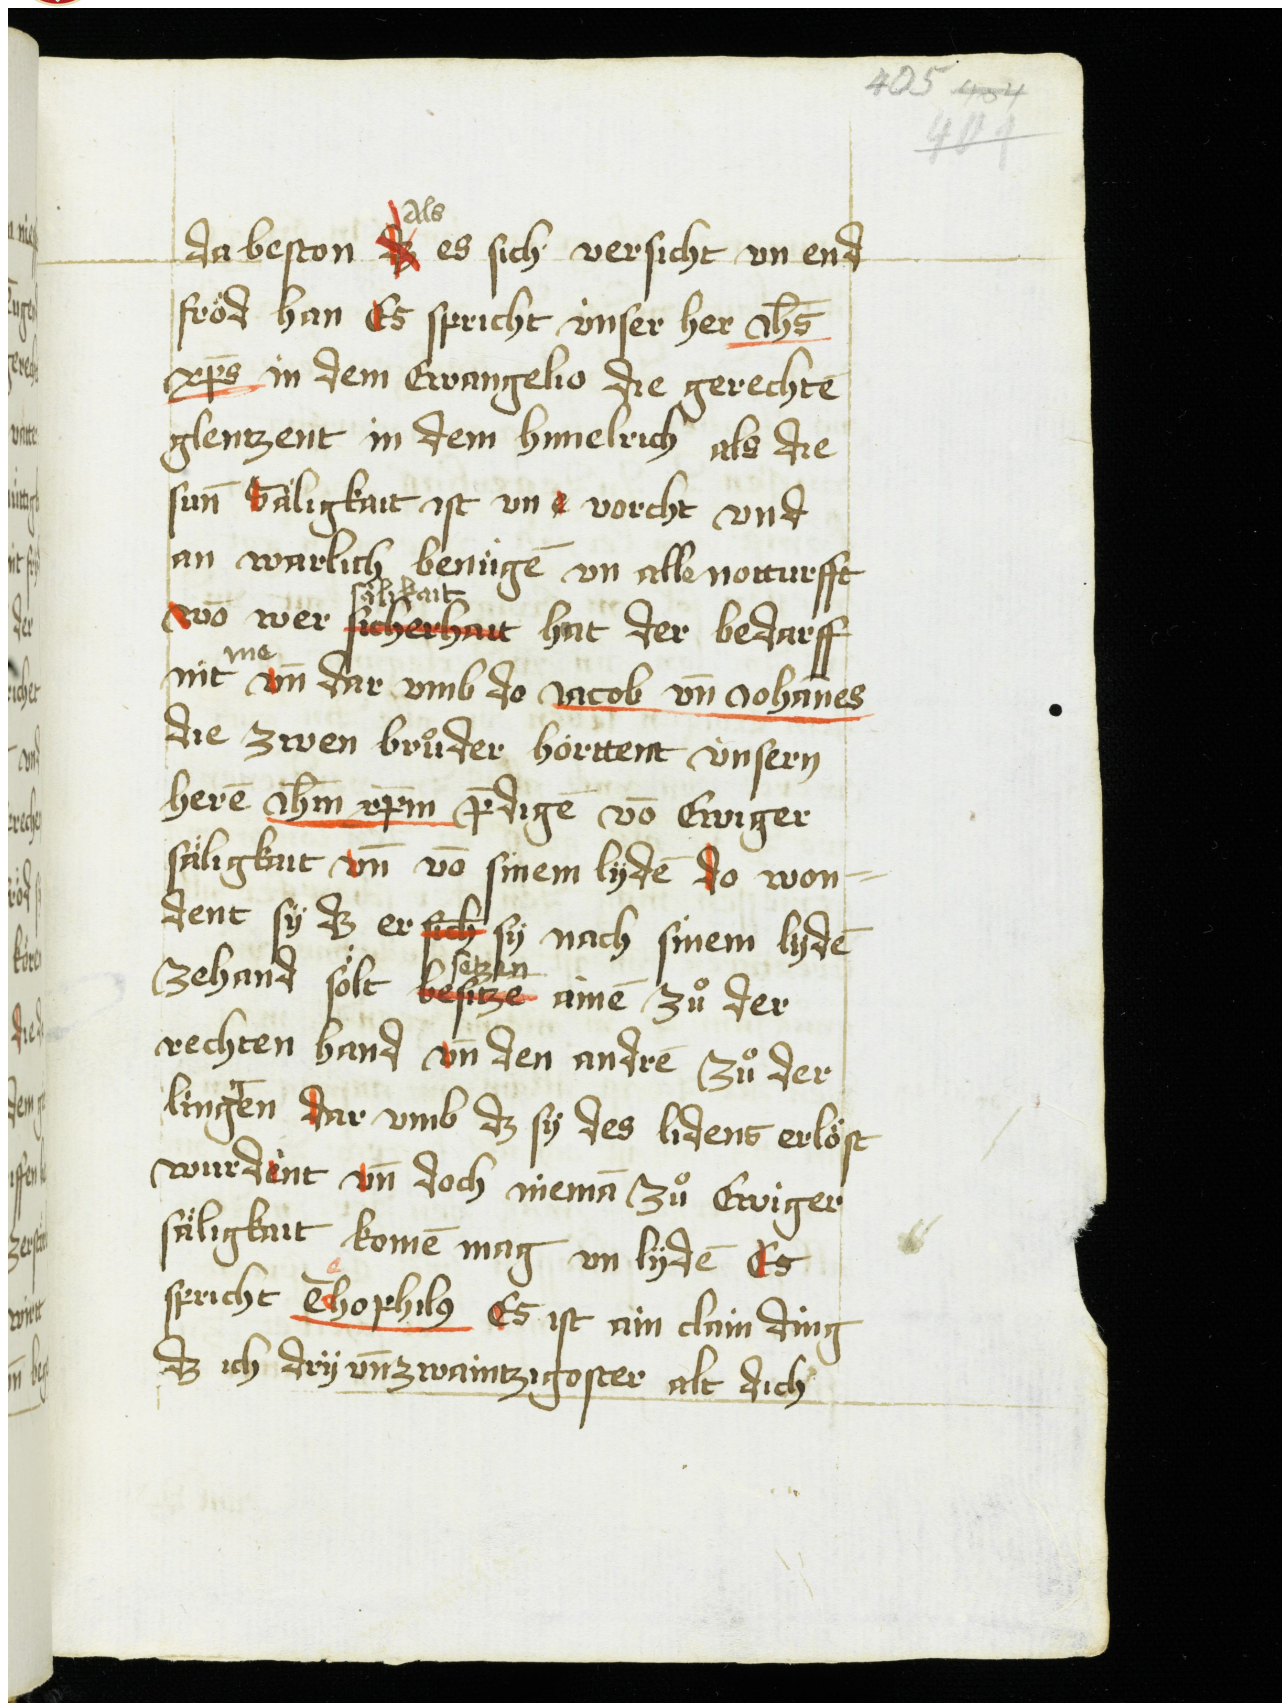 405 404
401
Als
da beston dz es sich versicht vn end
fröd han Es spricht vnser her ih̄s
xp̄s in dem Ewangelio die gerechtē
glentzent in dem himelrich als die
sun̄ Säligkait ist vn e vorcht vnd
an warlich benügē vn alle notturfft
sälikait
wō wer sicherhait hat der bedarff
me
nit vn̄ dar vmb do Jacob vn̄ Johan̄es
die zwen brůder hörttent vnsern
herē ih̄m xp̄m p̄digē vō Ewiger
säligkait vn̄ vō sinem lydē do won=
dent sÿ dz er sich sÿ nach sinem lydē
setzen
zehand sölt besitzē ainē zů der
rechten hand vn̄ den andrē zů der
linggen dar vmb dz sÿ des lidens erlöst
wurdent vn̄ doch niemā zů Ewiger
säligkait komē mag vn lÿdē Es
spricht Theophilꝰ Es ist ain clain ding
dz ich drÿ vn̄zwaintzigoster alt dich